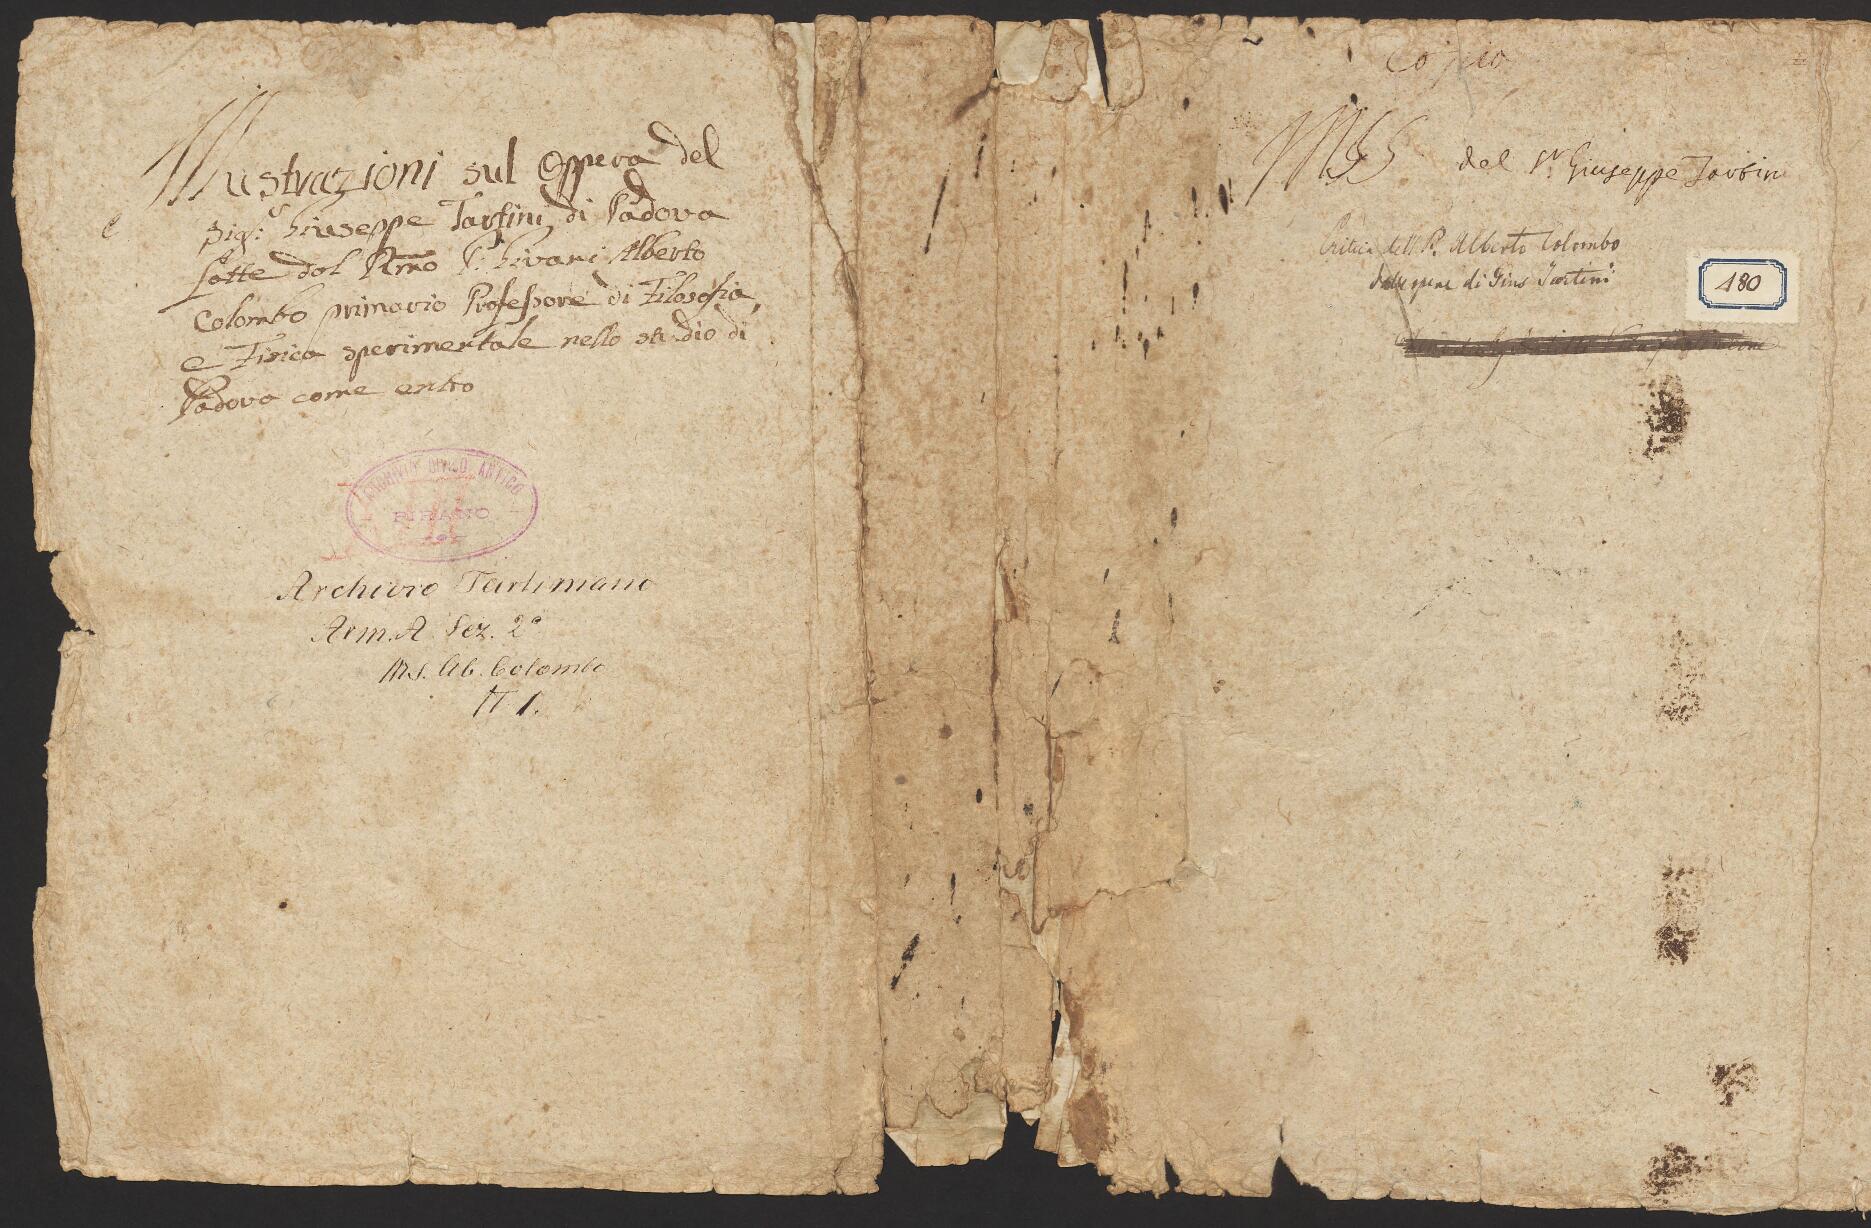 Illustrazioni sul Oppera del
Sig.r Giuseppe Tartini di Padova
fatte dal Rmo P. Giovani Alberto
Colombo primario Professore di Filosofia,
e Fisica sperimentale nello studio di
Padova come entro
ARCHIVIO CIVICO ANTICO
PIRANO
Archivio Tartiniano
Arm. A Sez. 2a
Ms. Ab. Colombo
N 1.
Copia
MSS del Sr. Giuseppe Tartini
Critica del P. Alberto Colombo
Sulle opere di Gius Tartini
180